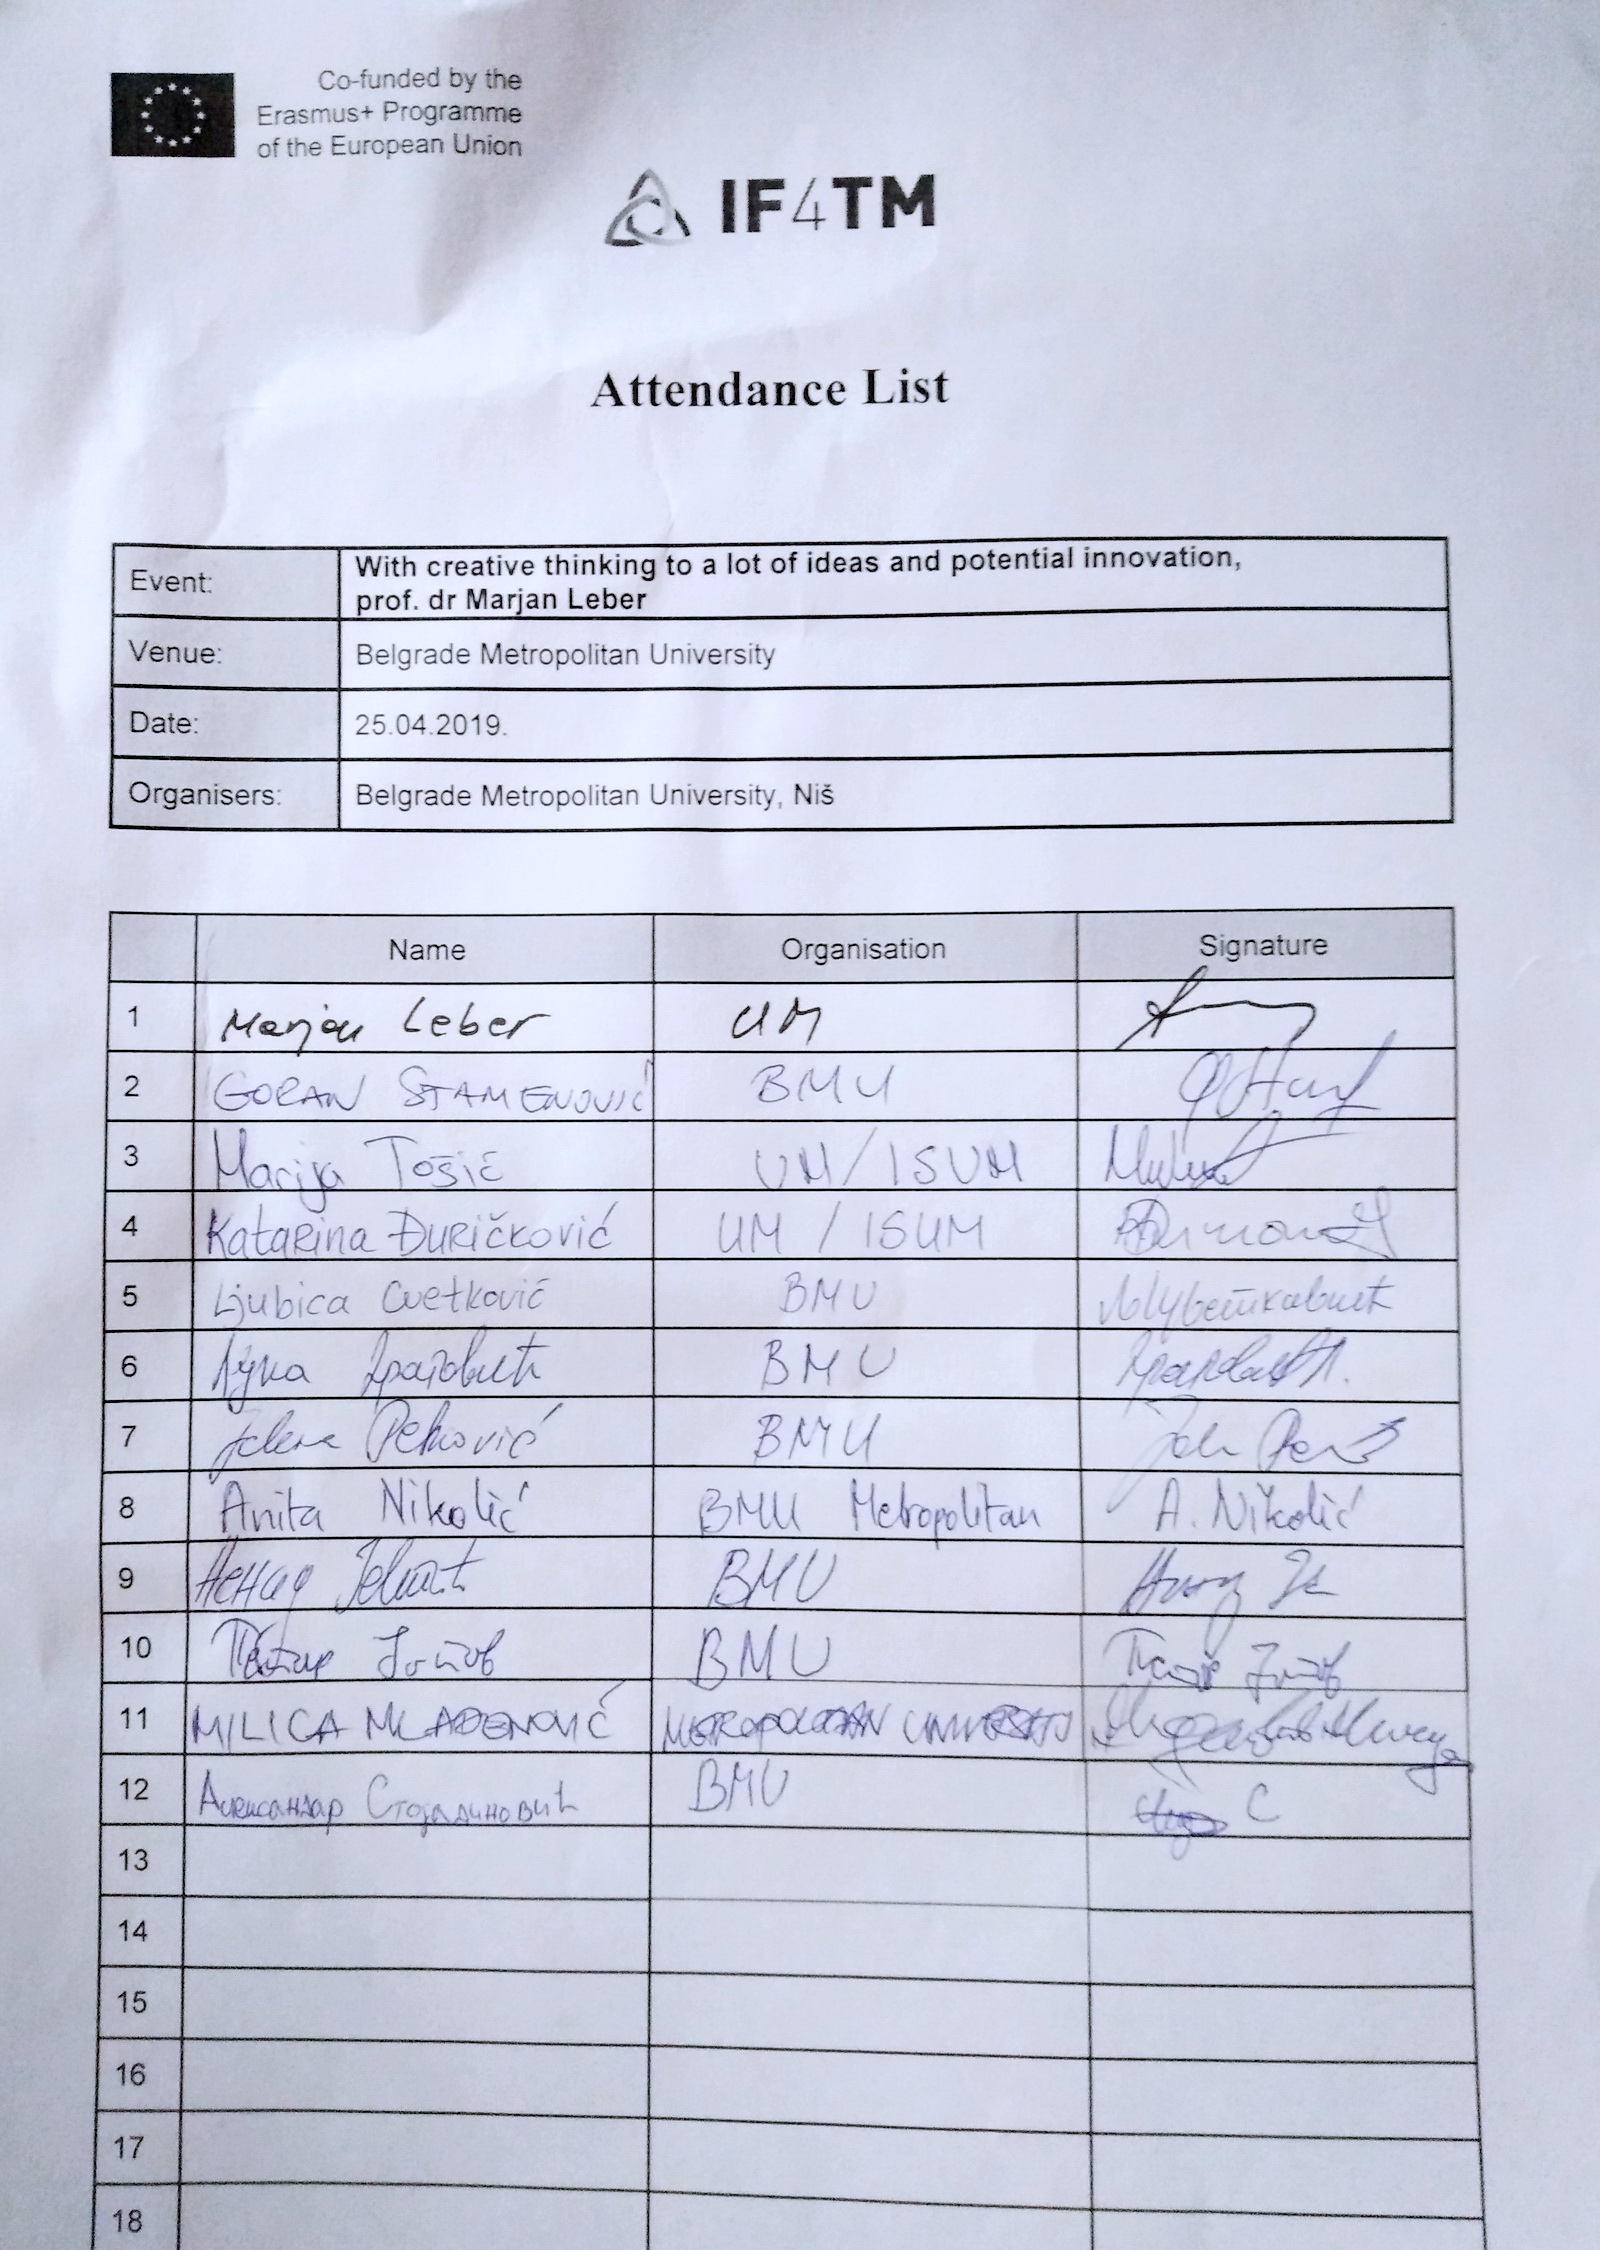 Co-funded by the
Erasmus+ Programme
of the European Union
IF4TM
Attendance List
Event: With creative thinking to a lot of ideas and potential innovation,
prof. dr Marjan Leber
Venue: Belgrade Metropolitan University
Date: 25.04.2019.
Organisers: Belgrade Metropolitan University, Niš
Name Organisation Signature
1 Marjan Leber UM
2 GORAN STAMENOVIĆ BMU
3 Marija Tošić UM/ISUM
4 Katarina Đuričković UM / ISUM
5 Ljubica Cvetković BMU
6 BMU
7 Jelena Petković BMU
8 Anita Nikolić BMU Metropolitan A. Nikolić
9 Ненад BMU
10 BMU
11 MILICA MLADENOVIĆ METROPOLITAN UNIVERSITY
12 Александар Стојадиновић BMU С
13
14
15
16
17
18